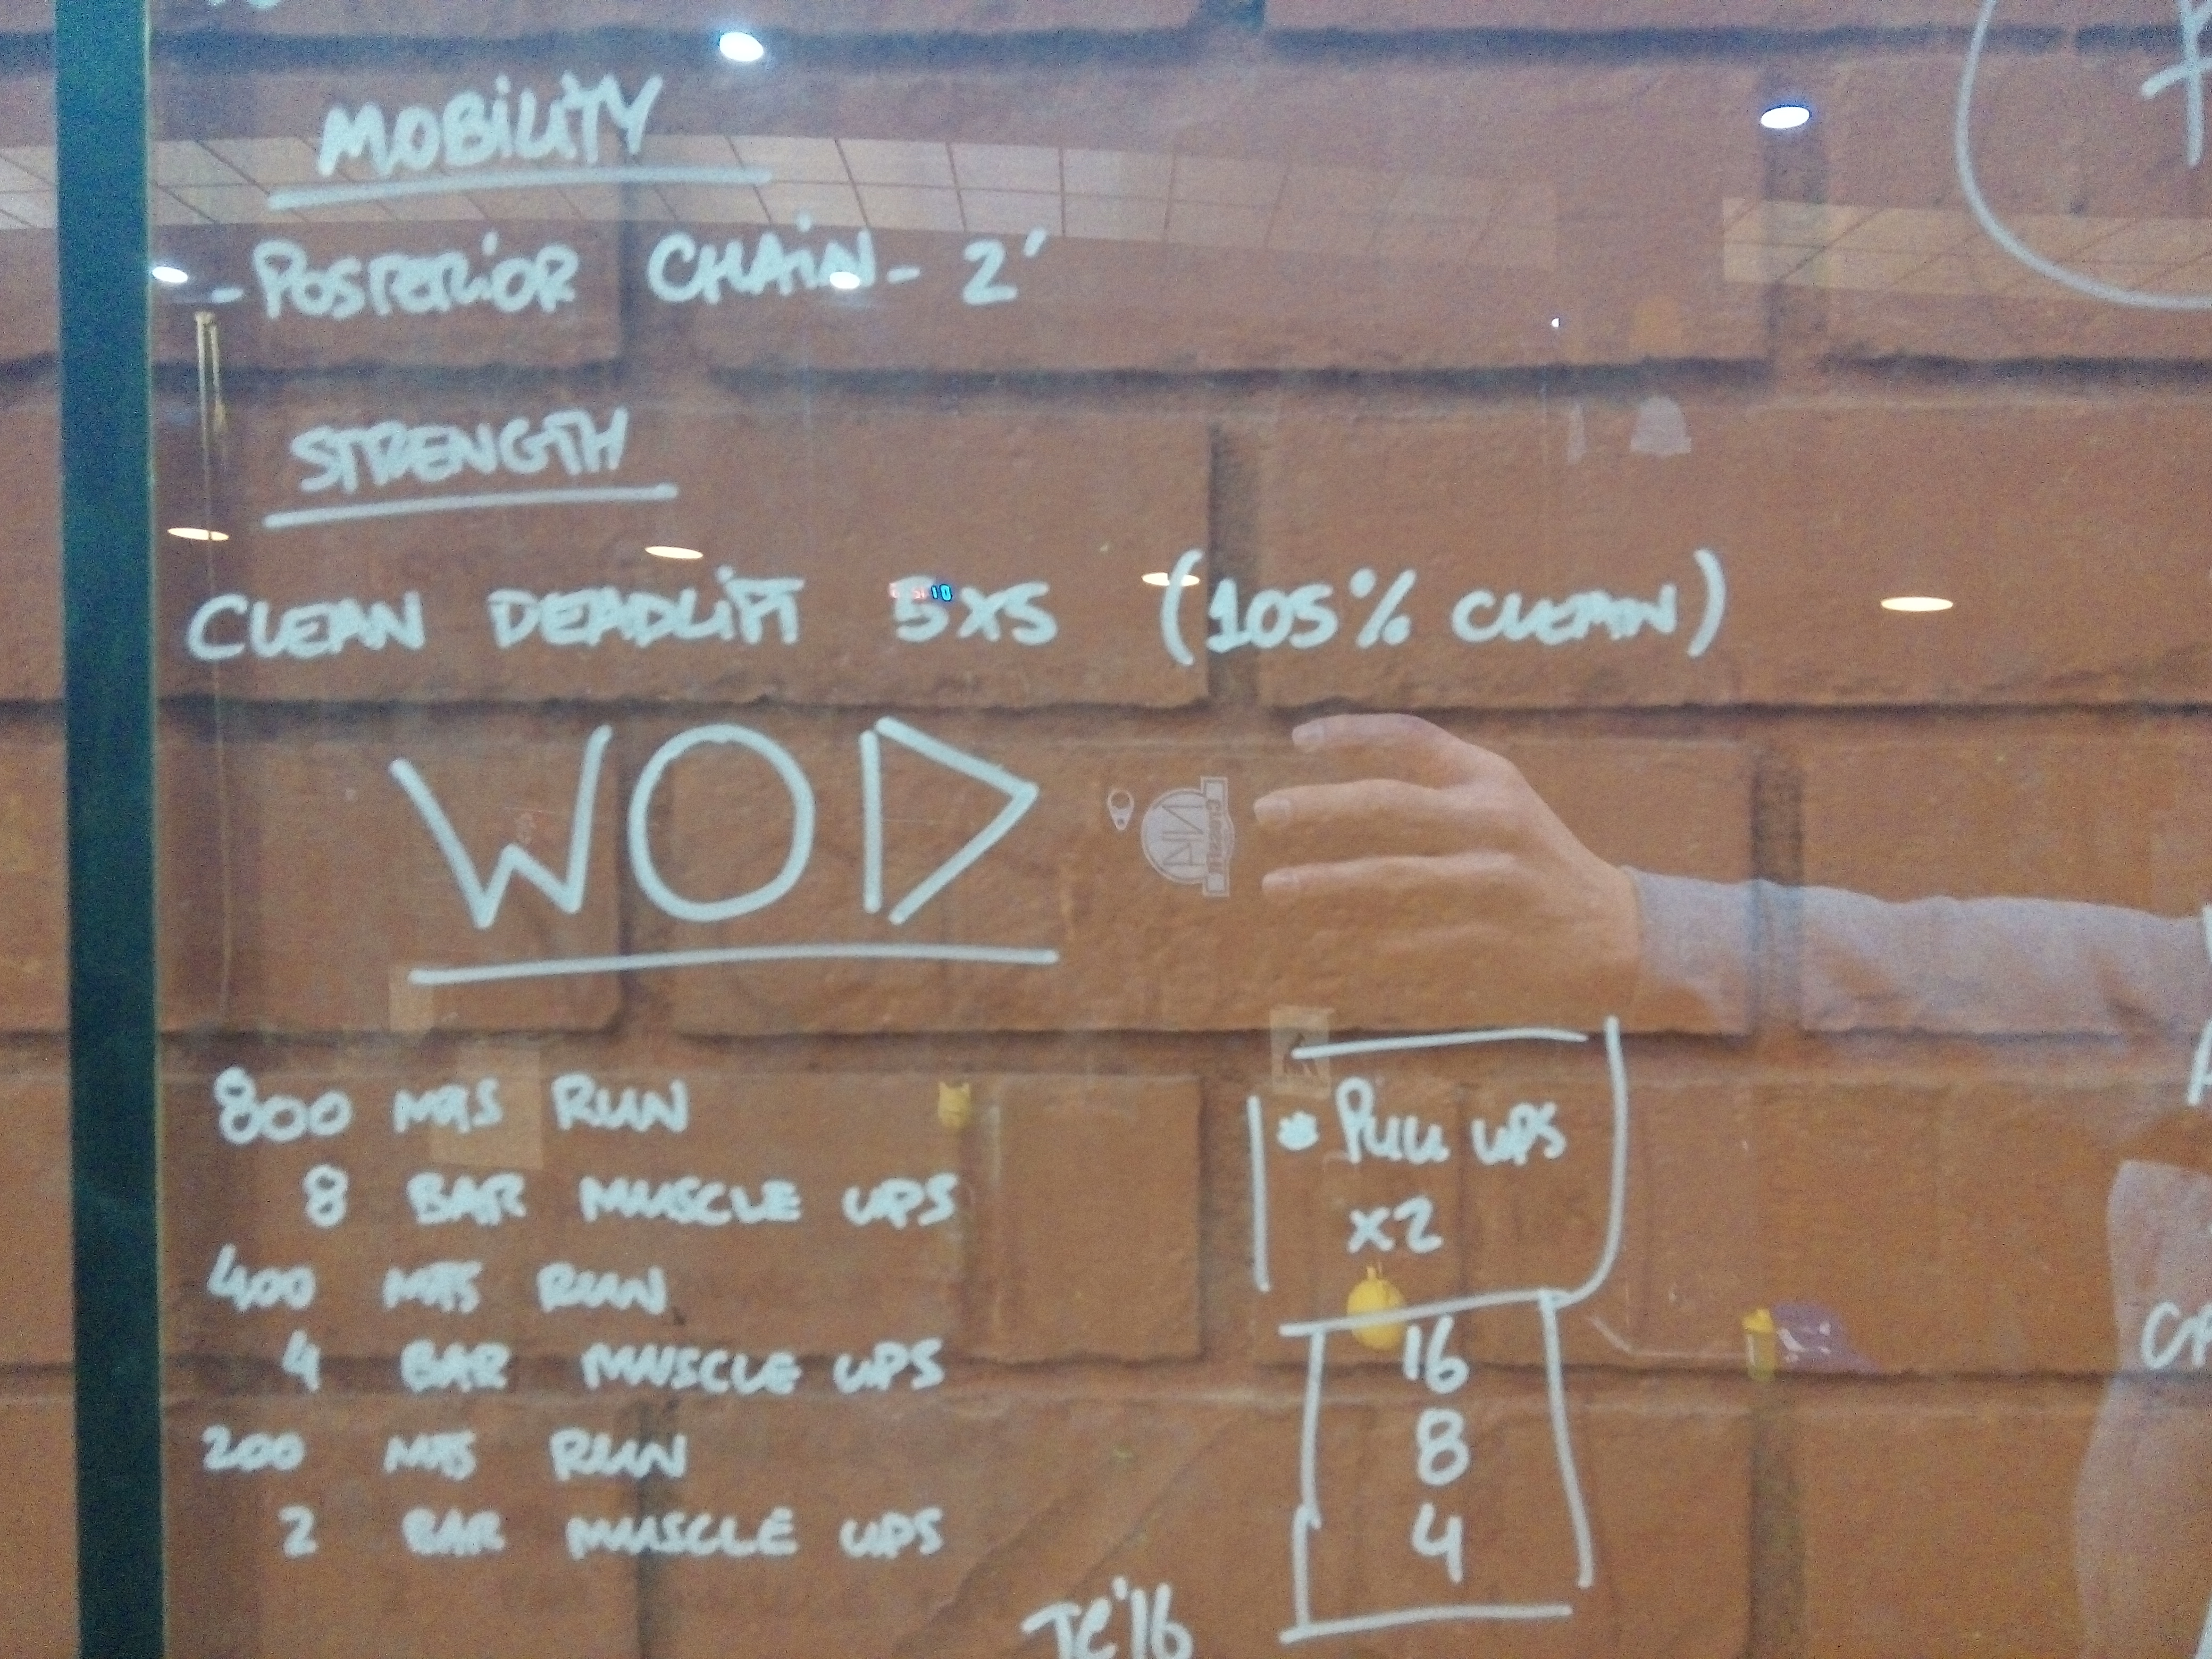 MOBILITY
- POSTERIOR CHAIN - 2'
STRENGTH
CLEAN DEADLIFT 5x5 (105% CLEAN)
WOD
800 MTS RUN
8 BAR MUSCLE UPS
400 MTS RUN
4 BAR MUSCLE UPS
200 MTS RUN
2 BAR MUSCLE UPS
* PULL UPS
x2
16
8
4
TC'16